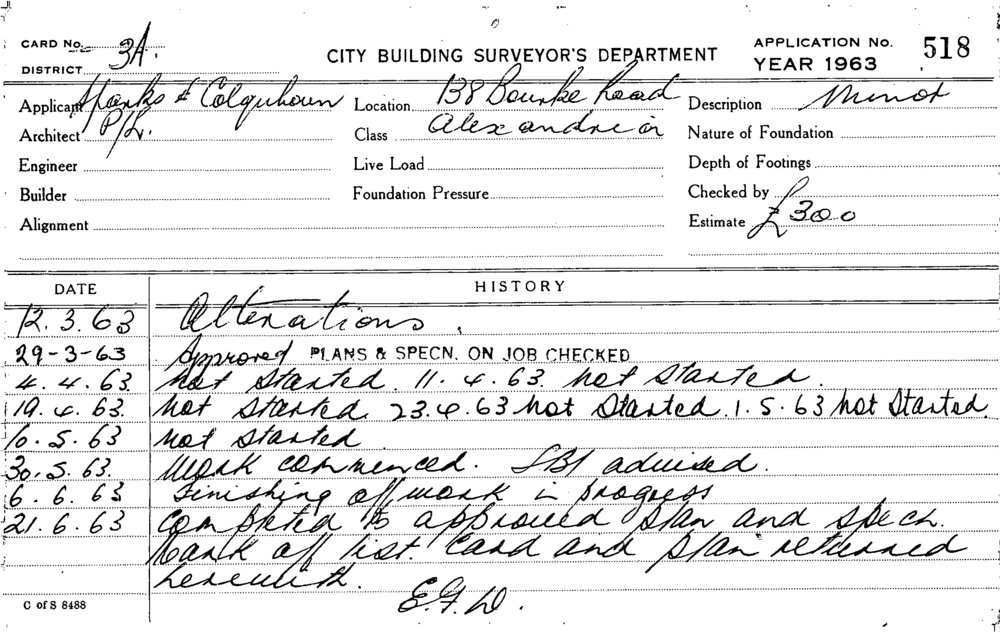 CARD No. 3A.
DISTRICT
CITY BUILDING SURVEYOR'S DEPARTMENT
APPLICATION No. 518
YEAR 1963
Applicant Sparks & Colquhoun P/L.
Location 138 Bourke Road Alexandria
Description Minor
Architect
Class
Nature of Foundation
Engineer
Live Load
Depth of Footings
Builder
Foundation Pressure
Checked by
Alignment
Estimate £300
DATE HISTORY
12.3.63 Alterations.
29-3-63 Approved PLANS & SPECN. ON JOB CHECKED
4.4.63. not started. 11.4.63. not started.
19.4.63. not started. 23.4.63 not started. 1.5.63 not started.
10.5.63 not started
30.5.63. Work commenced. SBI advised.
6.6.63 Finishing off work in progress
21.6.63 Completed to approved plan and specn.
off list. Card and plan returned
herewith.
E.F.D.
C of S 8488